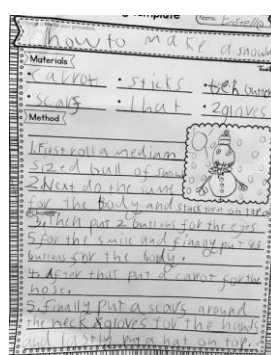 Template
Name:
how to make a snowm
Materials
• carrot • sticks • ten buttons
• scarf • 1 hat • 2 gloves
Method
1. First roll a median
sized ball of snow
2. Next do the same
for the body and stack them on top
3. Then put 2 buttons for the eyes
5 for the smile and finally put
buttons for the body.
4. After that put a carot for the
nose.
5. Finally put a scarf around
the neck gloves for the hands
and lastly put a hat on top.